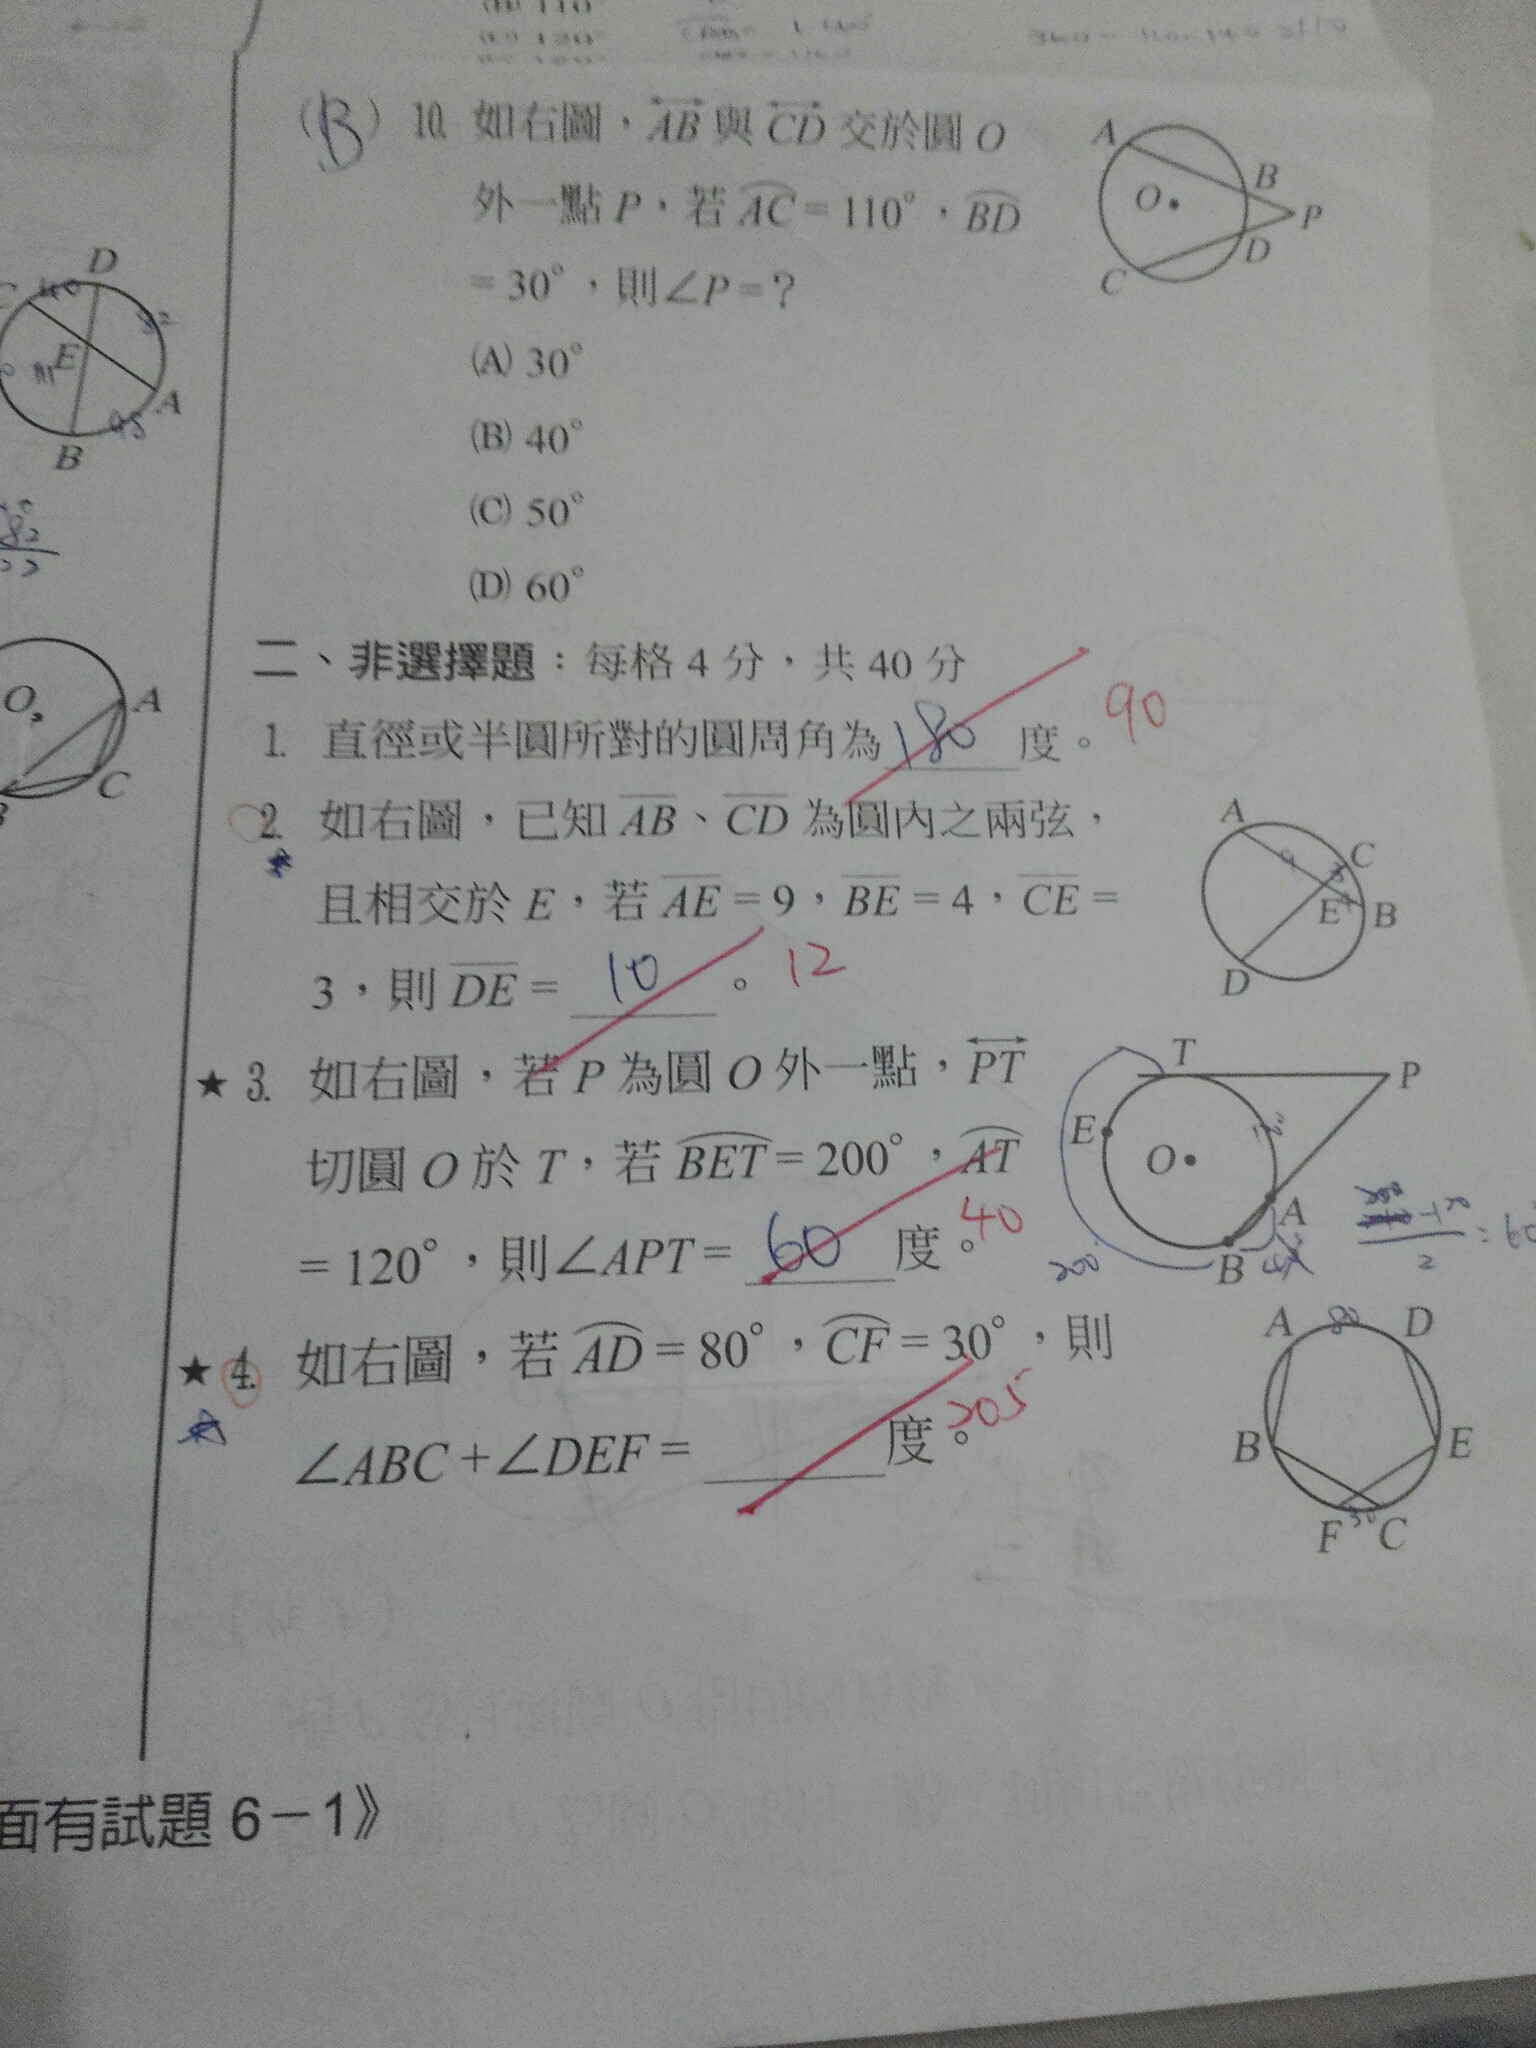 (B) 110°
(C) 120°
(B) 10. 如右圖，AB與CD交於圓O
外一點P，若AC=110°，BD
=30°，則∠P=？
(A) 30°
(B) 40°
(C) 50°
(D) 60°
A
B
O
P
D
C
D
40
C
52
E
111
A
95
B
82
O
A
C
二、非選擇題：每格4分，共40分
1. 直徑或半圓所對的圓周角為180度。90
2. 如右圖，已知AB、CD為圓內之兩弦，
且相交於E，若AE=9，BE=4，CE=
3，則DE=10。12
A
9
C
3
E
4
B
D
★3. 如右圖，若P為圓O外一點，PT
切圓O於T，若BET=200°，AT
=120°，則∠APT=60度。40
T
P
E
O
A
B
200
★4. 如右圖，若AD=80°，CF=30°，則
∠ABC+∠DEF=度。205
A
80
D
B
E
F
30
C
面有試題6－1》